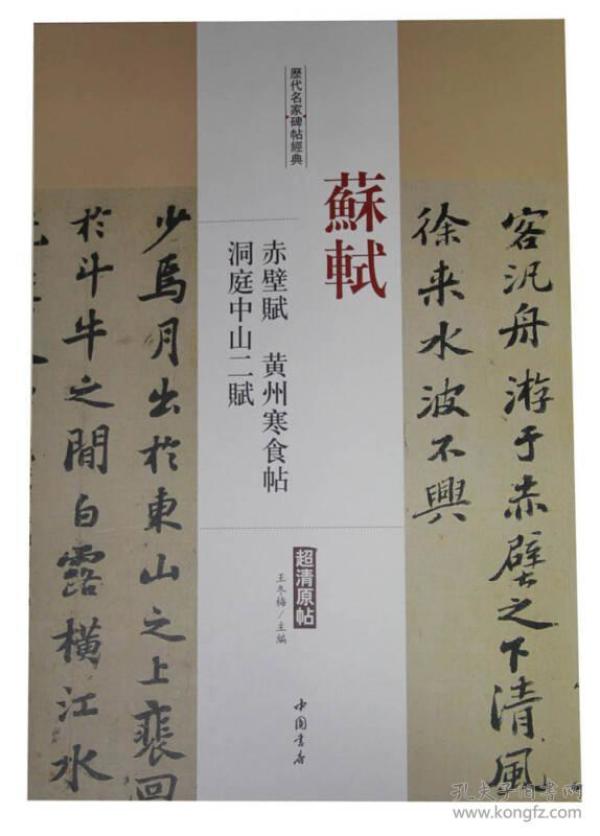 客汎舟游于赤壁之下清風
徐来水波不興
蘇軾
歷代名家碑帖經典
赤壁賦 黄州寒食帖
洞庭中山二賦
超清原帖
王冬梅/主編
中国书店
少焉月出於東山之上裴回
於斗牛之間白露横江水
孔夫子旧书网
www.kongfz.com